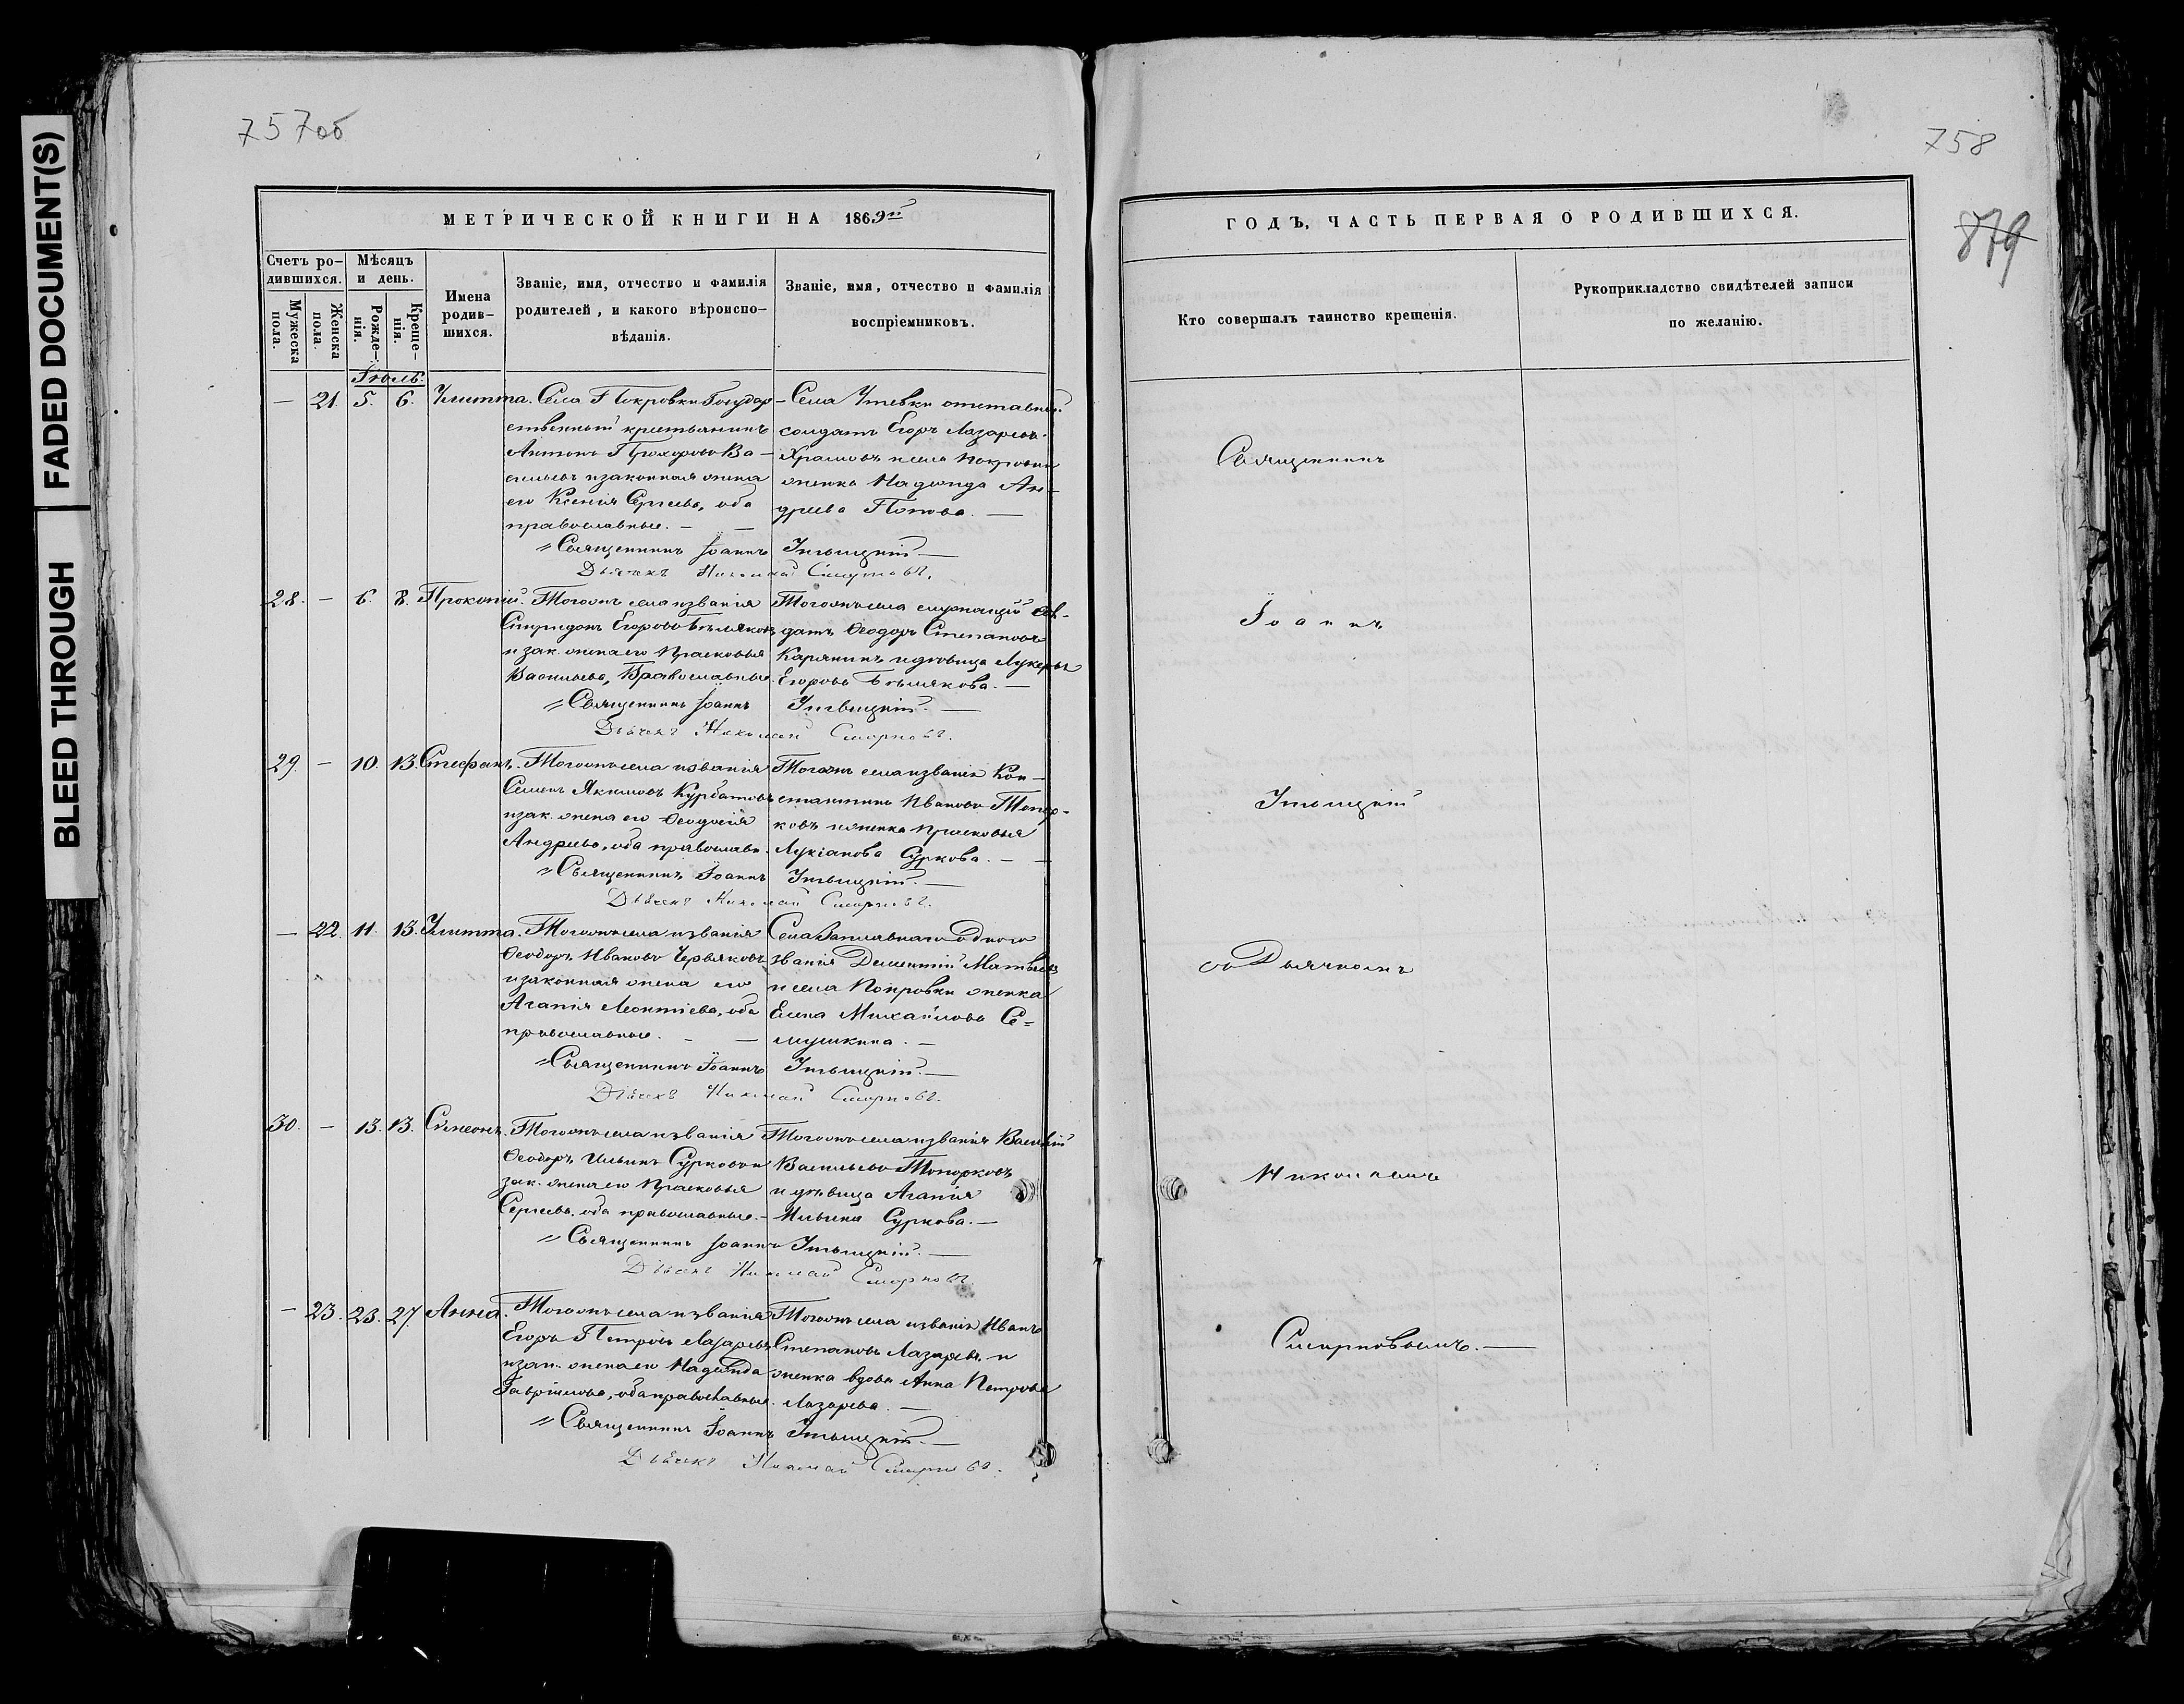 FADED DOCUMENT(S)
BLEED THROUGH
757об
758
879
МЕТРИЧЕСКОЙ КНИГИ НА 1869й
ГОДЪ, ЧАСТЬ ПЕРВАЯ О РОДИВШИХСЯ.
Счетъ ро-
дившихся.
Мужеска
пола.
Женска
пола.
Мѣсяцъ
и день.
Рожде-
нія.
Креще-
нія.
Имена
родив-
шихся.
Званіе, имя, отчество и фамилія
родителей, и какого вѣроиспо-
вѣданія.
Званіе, имя, отчество и фамилія
воспріемниковъ.
Кто совершалъ таинство крещенія.
Рукоприкладство свидѣтелей записи
по желанію.
Іюль.
— 21. 5. 6. Улитта.
Села Покровки Государ-
ственный крестьянинъ
Антонъ Прохоровъ Ва-
сильевъ и законная жена
его Ксенія Сергѣева, оба
православные. —
Села Утевки отставной
солдатъ Егоръ Лазаревъ
Храмовъ и села Покровки
женка Надежда Ан-
дреева Попова. —
Священникъ Іоаннъ
Дьячекъ Николай Смирновъ.
28. — 6. 8. Прокопій.
Тогожъ села и званія
Спиридонъ Егоровъ Бѣляковъ
и зак. жена его Прасковья
Васильева, Православные.
Тогожъ села служащій сол-
датъ Ѳеодоръ Степановъ
Карякинъ и дѣвица Лукерья
Егорова Бѣлякова. —
Священникъ Іоаннъ
Дьячекъ Николай Смирновъ.
29. — 10. 13. Стефанъ.
Тогожъ села и званія
Семенъ Якимовъ Курбатовъ
и зак. жена его Ѳеодосія
Андреева, оба православн.
Тогожъ села и званія Кон-
стантинъ Ивановъ Топор-
ковъ и женка Прасковья
Лукіанова Суркова. —
Священникъ Іоаннъ
Дьячекъ Николай Смирновъ.
— 22. 11. 13. Улитта.
Тогожъ села и званія
Ѳеодоръ Ивановъ Червяковъ
и законная жена его
Агапія Леонтіева, оба
православные. —
Села Заплавнаго одного
званія Дементій Матвѣевъ
и села Покровки женка
Елена Михайлова Се-
мушкина. —
Священникъ Іоаннъ
Дьячекъ Николай Смирновъ.
30. — 13. 13. Симеонъ.
Тогожъ села и званія
Ѳеодоръ Ильинъ Сурковъ и
зак. жена его Прасковья
Сергѣева, оба православные. —
Тогожъ села и званія Василій
Васильевъ Топорковъ
и дѣвица Агапія
Ильина Суркова. —
Священникъ Іоаннъ
Дьячекъ Николай Смирновъ.
— 23. 23. 27. Анна.
Тогожъ села и званія
Егоръ Петровъ Лазаревъ
и зак. жена его Надежда
Гавріилова, оба православные.
Тогожъ села и званія Иванъ
Степановъ Лазаревъ и
женка вдова Анна Петрова
Лазарева. —
Священникъ Іоаннъ
Дьячекъ Николай Смирновъ.
Священникъ
Іоаннъ
съ Дьячкомъ
Николаемъ
Смирновымъ. —